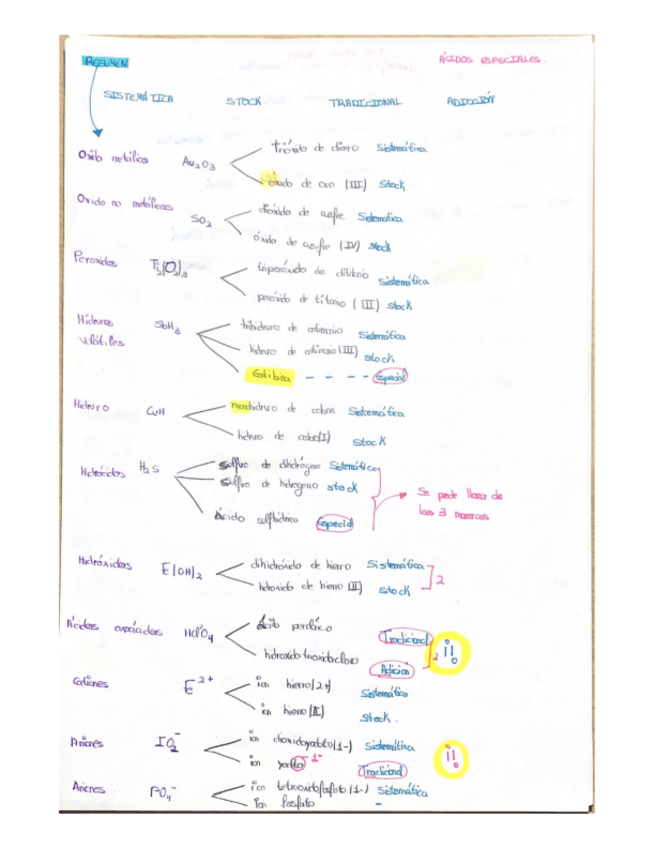 RESUMEN
ÁCIDOS ESPECIALES.
SISTEMÁTICA STOCK TRADICIONAL ADICCIÓN
Oxido metálico Au2O3 trióxido de dioro Sistemática
óxido de oro (III) Stock
Oxido no metálicos SO2 dióxido de azufre Sistemática
óxido de azufre (IV) stock
Peroxidos Ti2(O2)3 triperóxido de dititanio Sistemática
peróxido de titanio (III) stock
Hidruros volátiles SbH3 trihidruro de antimonio Sistemática
hidruro de antimonio (III) stock
Estibina - - - - especial
Hidruro CuH monohidruro de cobre Sistemática
hidruro de cobre(I) stock
Hidrácidos H2S sulfuro de dihidrógeno Sistemática
sulfuro de hidrogeno stock
ácido sulfhídrico especial
Se puede llamar de
las 3 maneras
Hidróxidos E(OH)2 dihidróxido de hierro Sistemática
hidroxido de hierro (II) stock
2
Ácidos oxoácidos HClO4 ácido perclórico Tradicional
hidroxidotrioxidocloro Adición
2 ¡!
Cationes E2+ ion hierro(2+) Sistemática
ion hierro (II) stock.
Aniones IO2- ion dioxidoyodato(1-) Sistemática
ion 1- Tradicional
¡!
Aniones PO4- ion tetraoxidofosfato (1-) Sistemática
ion fosfato -